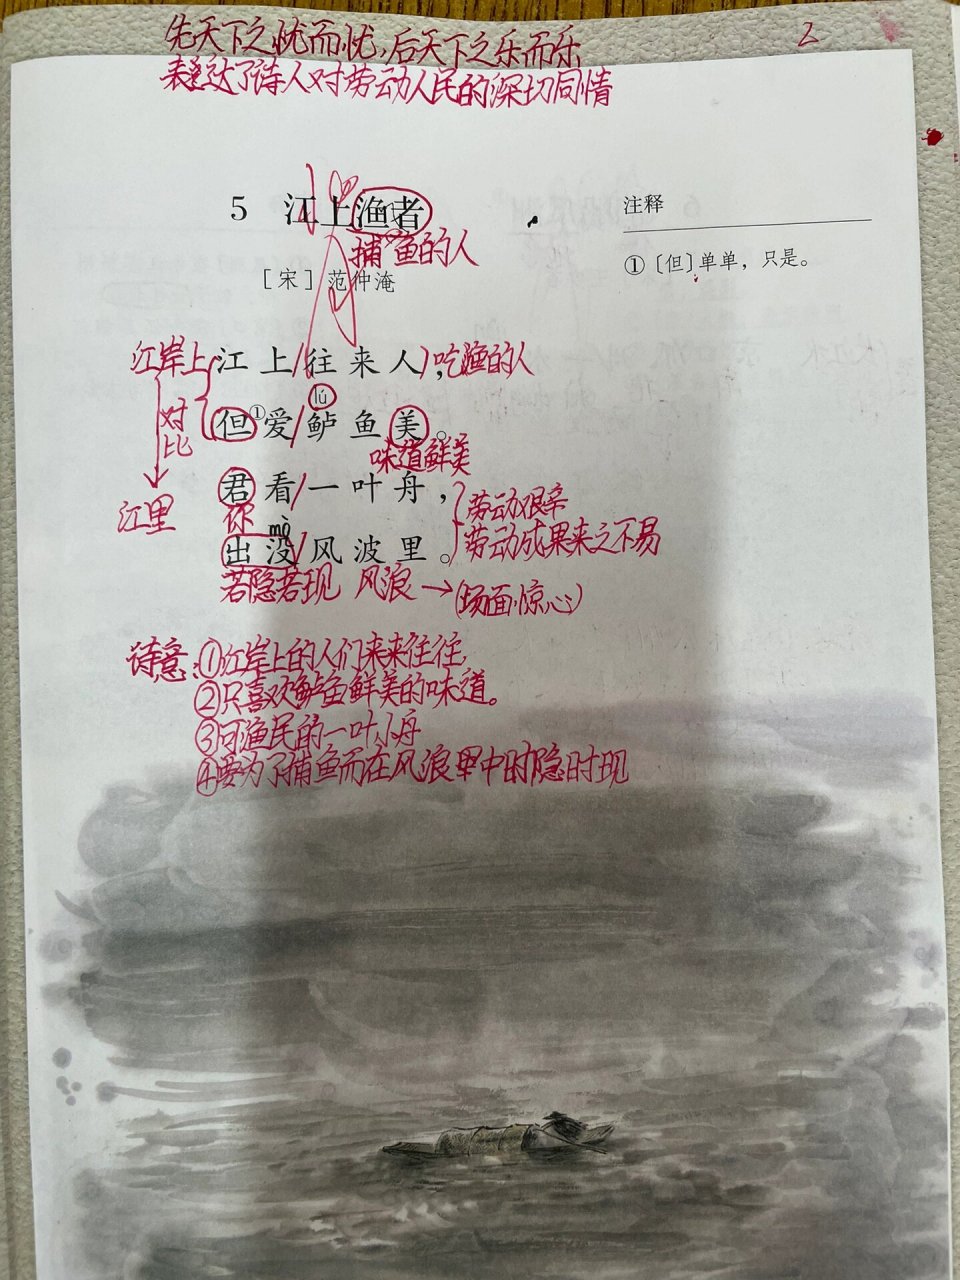 先天下之忧而忧,后天下之乐而乐
2
表达了诗人对劳动人民的深切同情
5 江上渔者
捕鱼的人
[宋] 范仲淹
注释
① [但] 单单，只是。
江岸上
江上/往来人，
吃渔的人
对比
lú
但①爱/鲈鱼美。
味道鲜美
江里
君看/一叶舟，
你
mò
出没/风波里。
劳动艰辛
劳动成果来之不易
若隐若现 风浪→(场面惊心)
诗意:①江岸上的人们来来往往,
②只喜欢鲈鱼鲜美的味道。
③可渔民的一叶小舟
④要为了捕鱼而在风浪里中时隐时现